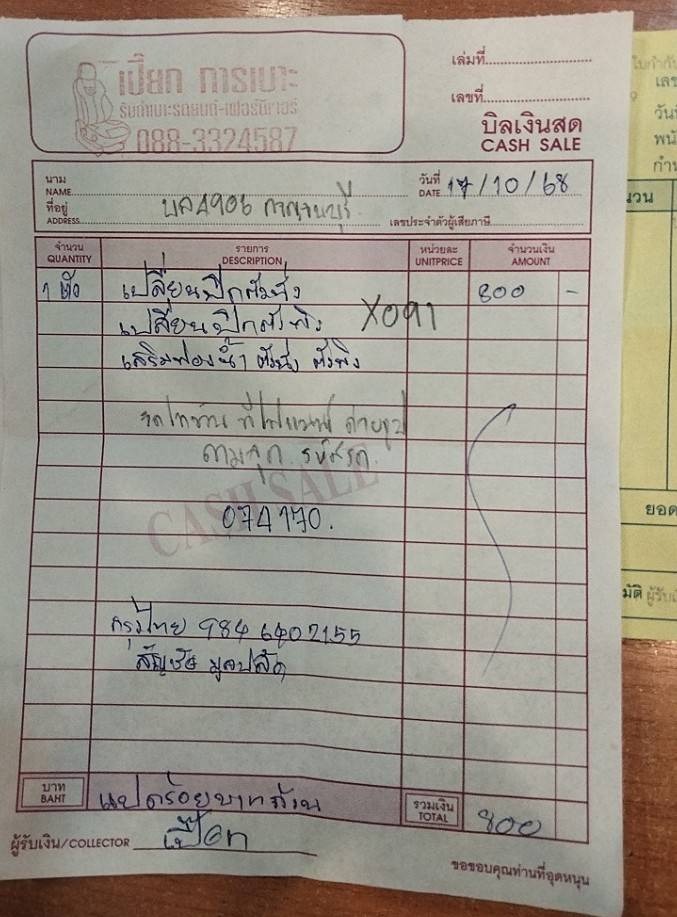 เปี๊ยก การเบาะ
รับทำเบาะรถยนต์-เฟอร์นิเจอร์
088-3324587
เล่มที่
เลขที่
บิลเงินสด
CASH SALE
นาม
NAME
วันที่
DATE 17/10/68
ที่อยู่
ADDRESS
บล4906 กาญจนบุรี
เลขประจำตัวผู้เสียภาษี
จำนวน รายการ หน่วยละ จำนวนเงิน
QUANTITY DESCRIPTION UNITPRICE AMOUNT
1 ตัว เปลี่ยนปีกตัวนั่ง 800 -
เปลี่ยนปีกตัวพิง X091
เสริมฟองน้ำ ตัวนั่ง ตัวพิง
ถ่ายรูป
ตามจุด รหัสรถ.
CASH SALE
074170.
กรุงไทย 984 6402155
สัญชัย มูลปลัด
บาท
BAHT
แปดร้อยบาทถ้วน
รวมเงิน
TOTAL 800
ผู้รับเงิน/COLLECTOR เปี๊ยก
ขอขอบคุณท่านที่อุดหนุน
ยอด